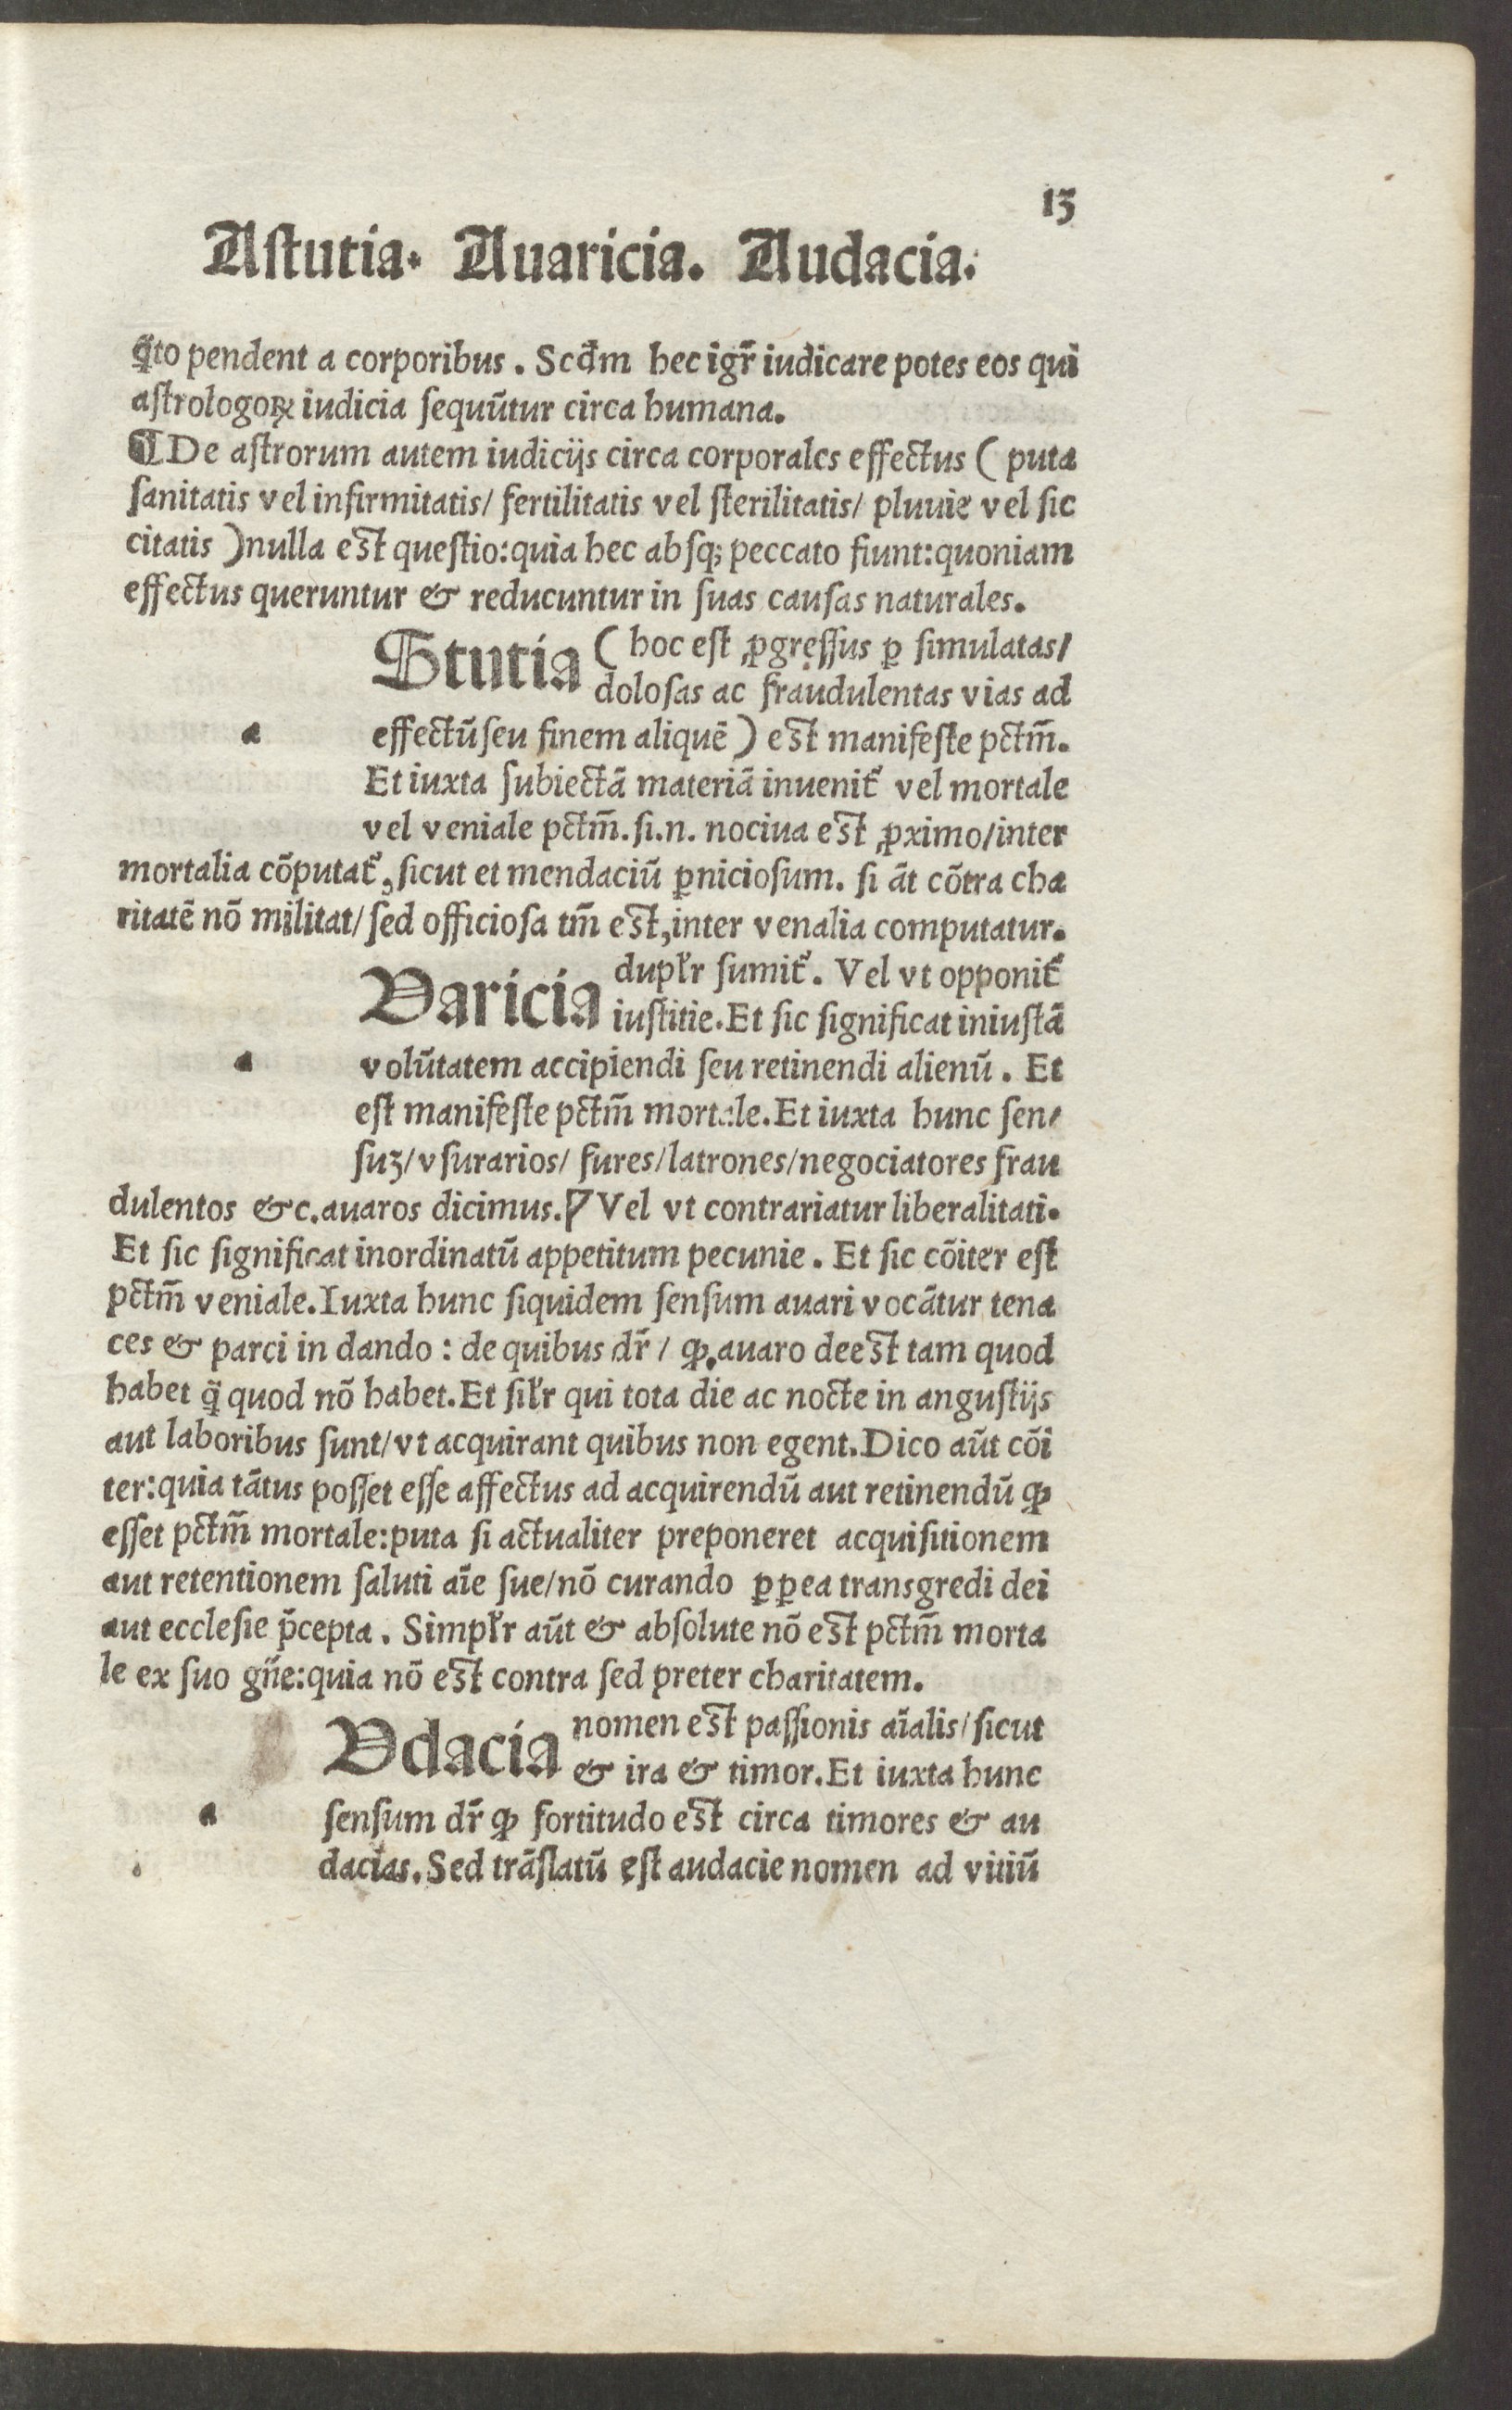 13
Astutia. Auaricia. Audacia.
q̃to pendent a corporibus. Scd̃m hec igr̃ iudicare potes eos qui
aſtrologoꝝ iudicia ſequũtur circa humana.
¶De aſtrorum autem iudicijs circa corporales effectus (puta
ſanitatis vel infirmitatis/ fertilitatis vel ſterilitatis/ pluuie vel ſic
citatis )nulla est queſtio:quia hec abſqꝫ peccato fiunt:quoniam
effectus queruntur & reducuntur in ſuas cauſas naturales.
Stutia (hoc eſt ꝓgreſſus ꝑ ſimulatas/
doloſas ac fraudulentas vias ad
a
effectũ ſeu finem aliquẽ) est manifeſte pctm̃.
Et iuxta ſubiectã materiã inuenit᷑ vel mortale
vel veniale pctm̃.ſi.n. nociua est ꝓximo/inter
mortalia cõputat᷑, ſicut et mendaciũ ꝑnicioſum. ſi ãt cõtra cha
ritatẽ nõ militat/ſed officioſa tm̃ est,inter venalia computatur.
Varicia dupl̃r ſumit᷑. Vel vt opponit᷑
iuſtitie.Et ſic ſignificat iniuſtã
a
volũtatem accipiendi ſeu retinendi alienũ. Et
eſt manifeſte pctm̃ mortale.Et iuxta hunc ſen/
ſuꝫ/vſurarios/ fures/latrones/negociatores frau
dulentos &c.auaros dicimus. Vel vt contrariatur liberalitati.
Et ſic ſignificat inordinatũ appetitum pecunie. Et ſic cõiter eſt
pctm̃ veniale.Iuxta hunc ſiquidem ſenſum auari vocãtur tena
ces & parci in dando: de quibus dr̃/ ꝙ.auaro deest tam quod
habet q̃ quod nõ habet.Et ſil̃r qui tota die ac nocte in anguſtijs
aut laboribus ſunt/vt acquirant quibus non egent.Dico aũt cõi
ter:quia tãtus poſſet eſſe affectus ad acquirendũ aut retinendũ ꝙ
eſſet pctm̃ mortale:puta ſi actualiter preponeret acquiſitionem
aut retentionem ſaluti aĩe ſue/nõ curando ꝑꝑea transgredi dei
aut eccleſie p̃cepta. Simpl̃r aũt & abſolute nõ est pctm̃ morta
le ex ſuo gñe:quia nõ est contra ſed preter charitatem.
Vdacia nomen est paſſionis aĩalis/ſicut
& ira & timor.Et iuxta hunc
a
ſenſum dr̃ ꝙ fortitudo est circa timores & au
dacias.Sed trãſlatũ eſt audacie nomen ad vitiũ